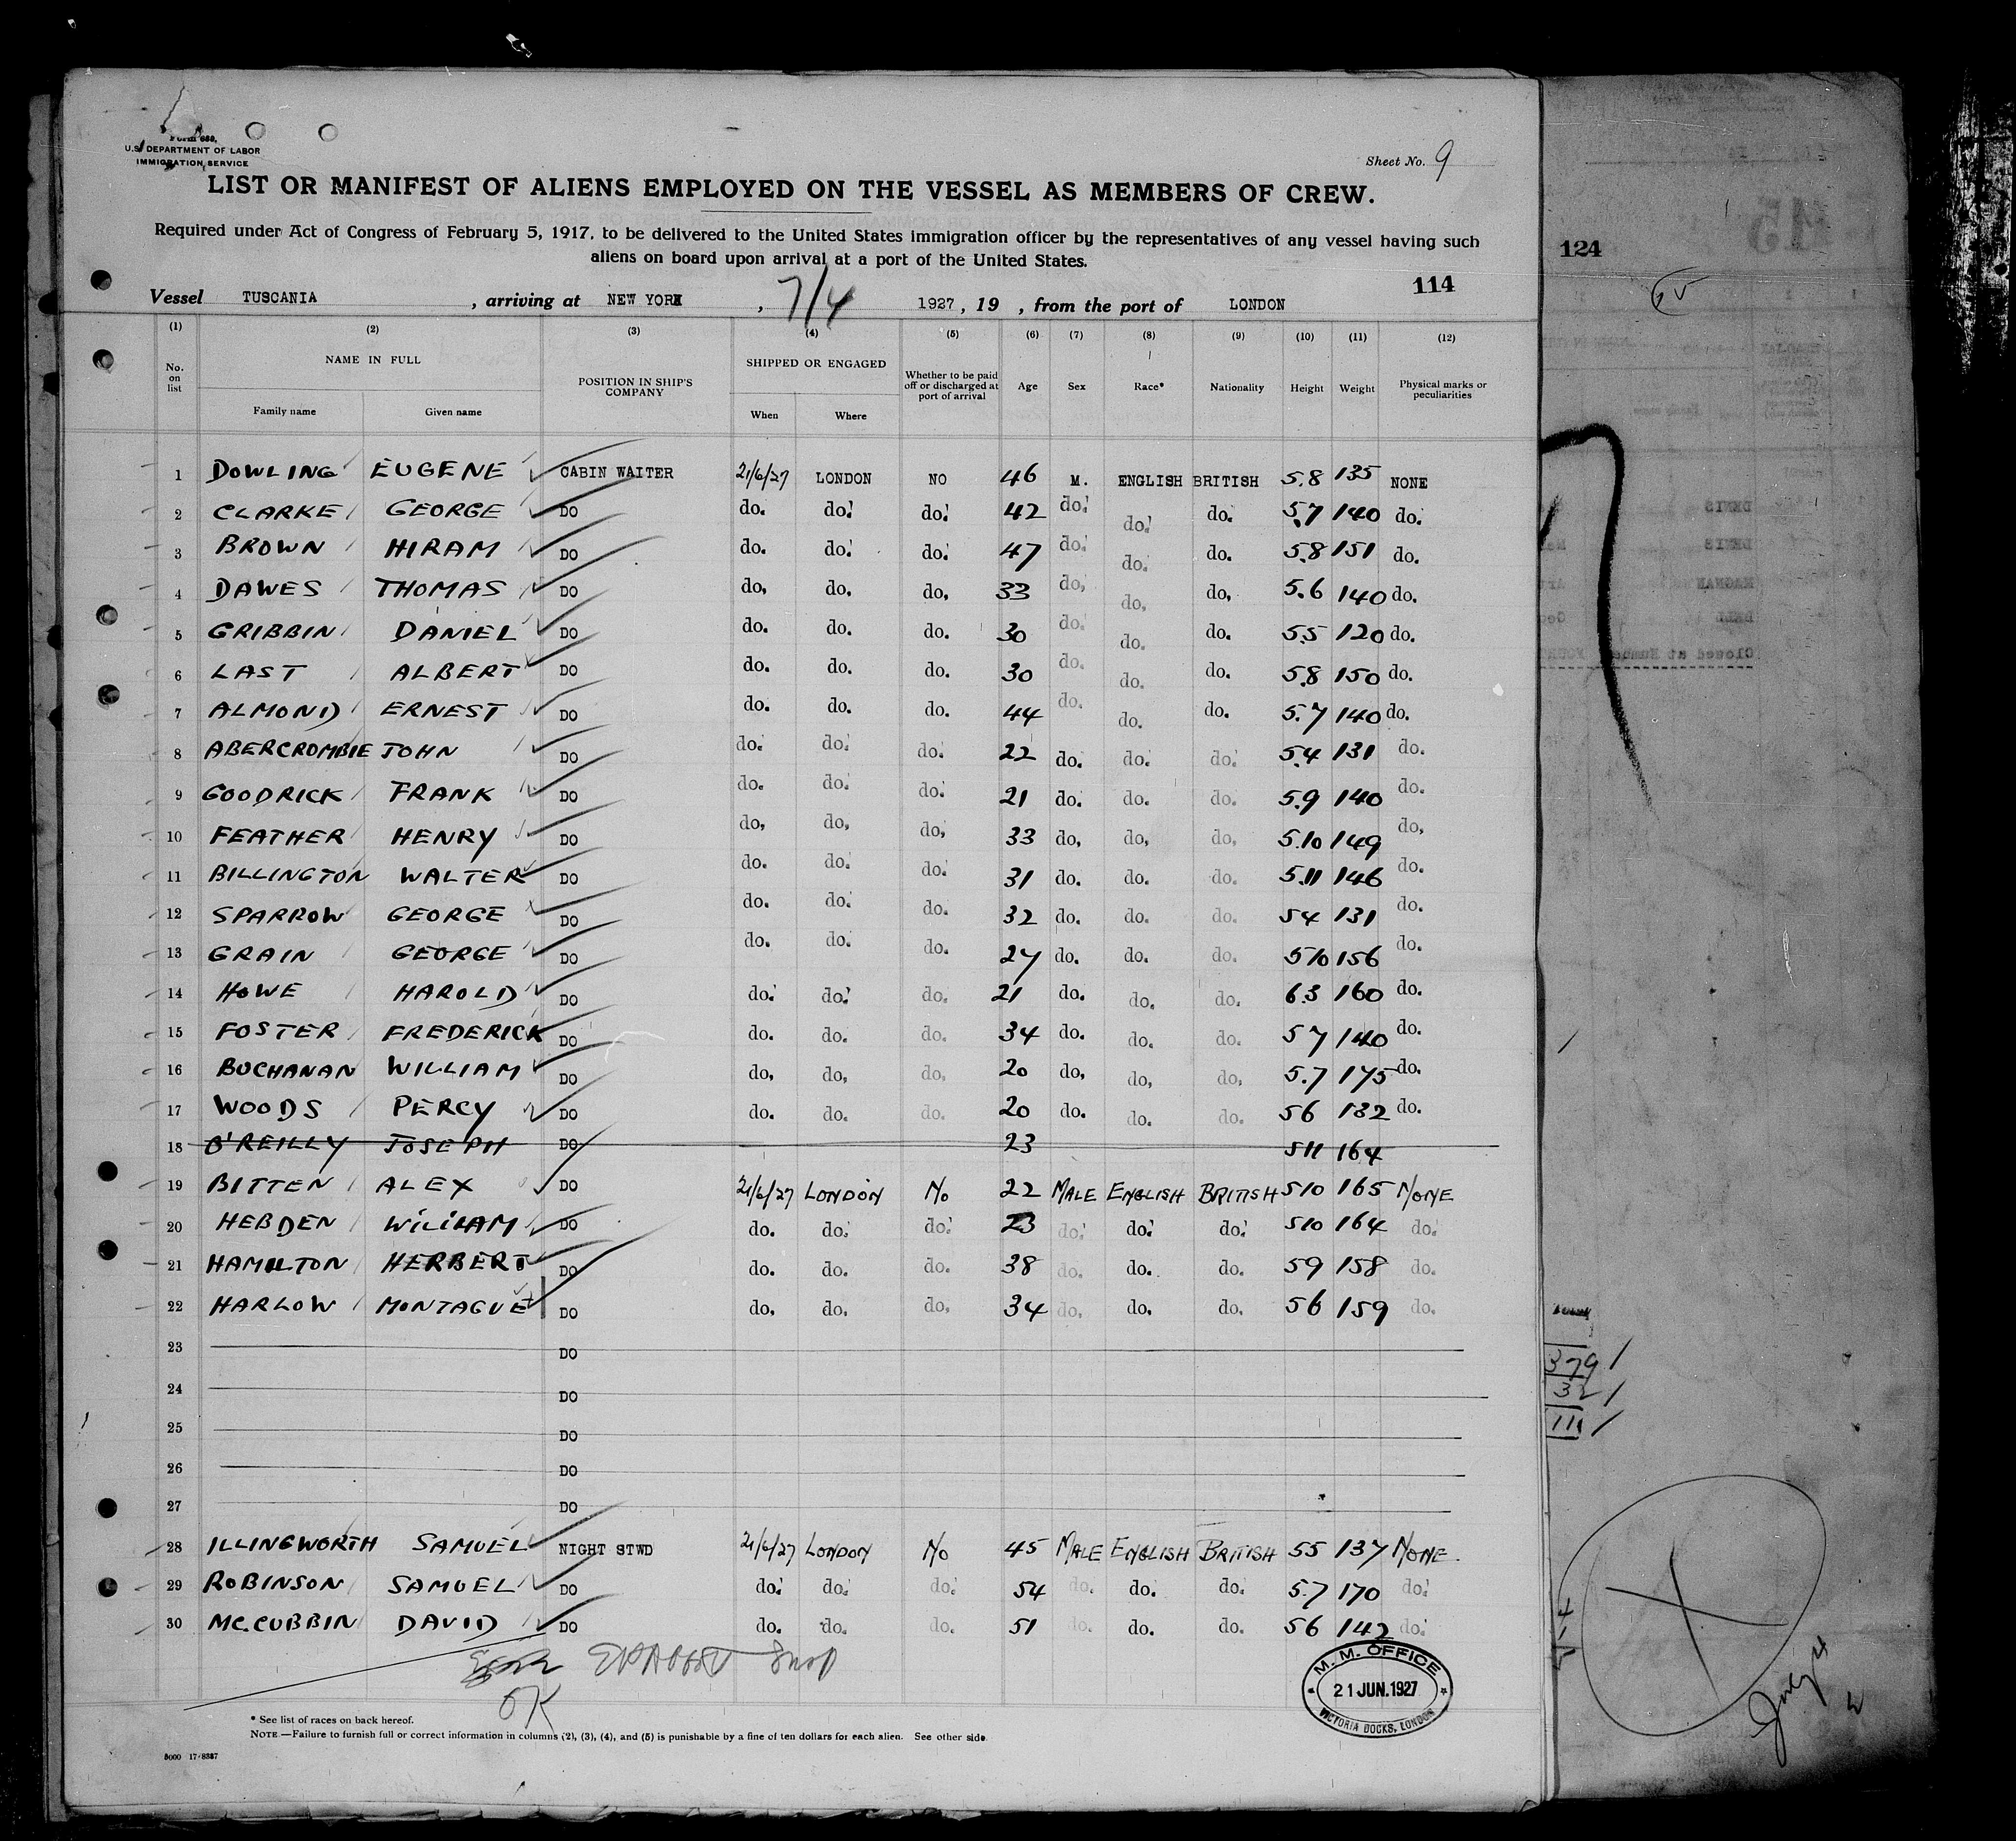 FORM 689,
U.S. DEPARTMENT OF LABOR
IMMIGRATION SERVICE
Sheet No. 9
LIST OR MANIFEST OF ALIENS EMPLOYED ON THE VESSEL AS MEMBERS OF CREW.
Required under Act of Congress of February 5, 1917, to be delivered to the United States immigration officer by the representatives of any vessel having such
aliens on board upon arrival at a port of the United States.
114
Vessel TUSCANIA , arriving at NEW YORK , 7/4 1927, 19 , from the port of LONDON
(1) (2) (3) (4) (5) (6) (7) (8) (9) (10) (11) (12)
No. on list NAME IN FULL POSITION IN SHIP'S COMPANY SHIPPED OR ENGAGED Whether to be paid off or discharged at port of arrival Age Sex Race* Nationality Height Weight Physical marks or peculiarities
Family name Given name When Where
1 DOWLING EUGENE CABIN WAITER 21/6/27 LONDON NO 46 M. ENGLISH BRITISH 5.8 135 NONE
2 CLARKE GEORGE DO do. do. do. 42 do. do. do. 5.7 140 do.
3 BROWN HIRAM DO do. do. do. 47 do. do. do. 5.8 151 do.
4 DAWES THOMAS DO do. do. do. 33 do. do. do. 5.6 140 do.
5 GRIBBIN DANIEL DO do. do. do. 30 do. do. do. 5.5 120 do.
6 LAST ALBERT DO do. do. do. 30 do. do. do. 5.8 150 do.
7 ALMOND ERNEST DO do. do. do. 44 do. do. do. 5.7 140 do.
8 ABERCROMBIE JOHN DO do. do. do. 22 do. do. do. 5.4 131 do.
9 GOODRICK FRANK DO do. do. do. 21 do. do. do. 5.9 140 do.
10 FEATHER HENRY DO do. do. do. 33 do. do. do. 5.10 149 do.
11 BILLINGTON WALTER DO do. do. do. 31 do. do. do. 5.11 146 do.
12 SPARROW GEORGE DO do. do. do. 32 do. do. do. 54 131 do.
13 GRAIN GEORGE DO do. do. do. 27 do. do. do. 510 156 do.
14 HOWE HAROLD DO do. do. do. 21 do. do. do. 6.3 160 do.
15 FOSTER FREDERICK DO do. do. do. 34 do. do. do. 57 140 do.
16 BUCHANAN WILLIAM DO do. do. do. 20 do. do. do. 5.7 175 do.
17 WOODS PERCY DO do. do. do. 20 do. do. do. 56 132 do.
18 O'REILLY JOSEPH DO 23 511 164
19 BITTEN ALEX DO 21/6/27 LONDON NO 22 MALE ENGLISH BRITISH 510 165 NONE
20 HEBDEN WILLIAM DO do. do. do. 23 do. do. do. 510 164 do.
21 HAMILTON HERBERT DO do. do. do. 38 do. do. do. 59 158 do.
22 HARLOW MONTAGUE DO do. do. do. 34 do. do. do. 56 159 do.
23 DO
24 DO
25 DO
26 DO
27 DO
28 ILLINGWORTH SAMUEL NIGHT STWD 21/6/27 LONDON NO 45 MALE ENGLISH BRITISH 55 137 NONE
29 ROBINSON SAMUEL DO do. do. do. 54 do. do. do. 5.7 170 do.
30 MC.CUBBIN DAVID DO do. do. do. 51 do. do. do. 56 142 do.
OK
M. M. OFFICE
21 JUN. 1927
VICTORIA DOCKS, LONDON
* See list of races on back hereof.
NOTE.—Failure to furnish full or correct information in columns (2), (3), (4), and (5) is punishable by a fine of ten dollars for each alien. See other side.
5000 17-8387
124
45
DENIS
DENIS
379
32
111
July 4